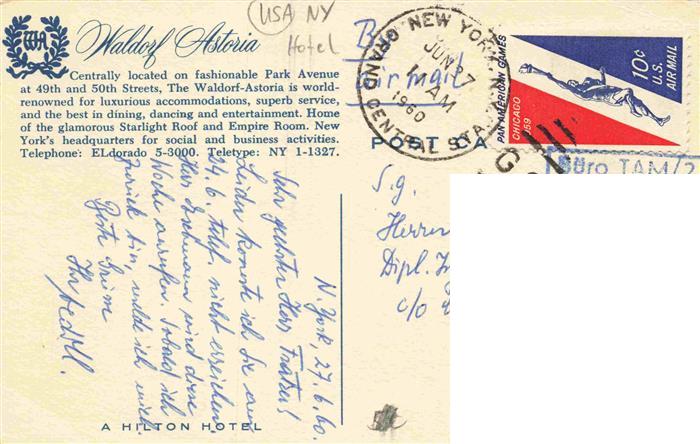 USA NY
Hotel
Waldorf Astoria
Centrally located on fashionable Park Avenue
at 49th and 50th Streets, The Waldorf-Astoria is world-
renowned for luxurious accommodations, superb service,
and the best in dining, dancing and entertainment. Home
of the glamorous Starlight Roof and Empire Room. New
York's headquarters for social and business activities.
Telephone: ELdorado 5-3000. Teletype: NY 1-1327.
By
air mail
NEW YORK, N.Y.
JUN 27
AM
1960
GRAND CENTRAL STA.
PAN AMERICAN GAMES
CHICAGO 1959
10¢
U.S.
AIR MAIL
POST CA
Büro TAM/2
N. York 27.6.60.
Sehr geehrter Herr
Leider konnte ich Sie am
24.6. telef. nicht erreichen.
Herr wird diese
Woche anrufen. Sobald ich
zurück bin, melde ich mich.
Beste Grüsse
Ihr
S.g.
Herrn
Dipl. I
c/o
A HILTON HOTEL